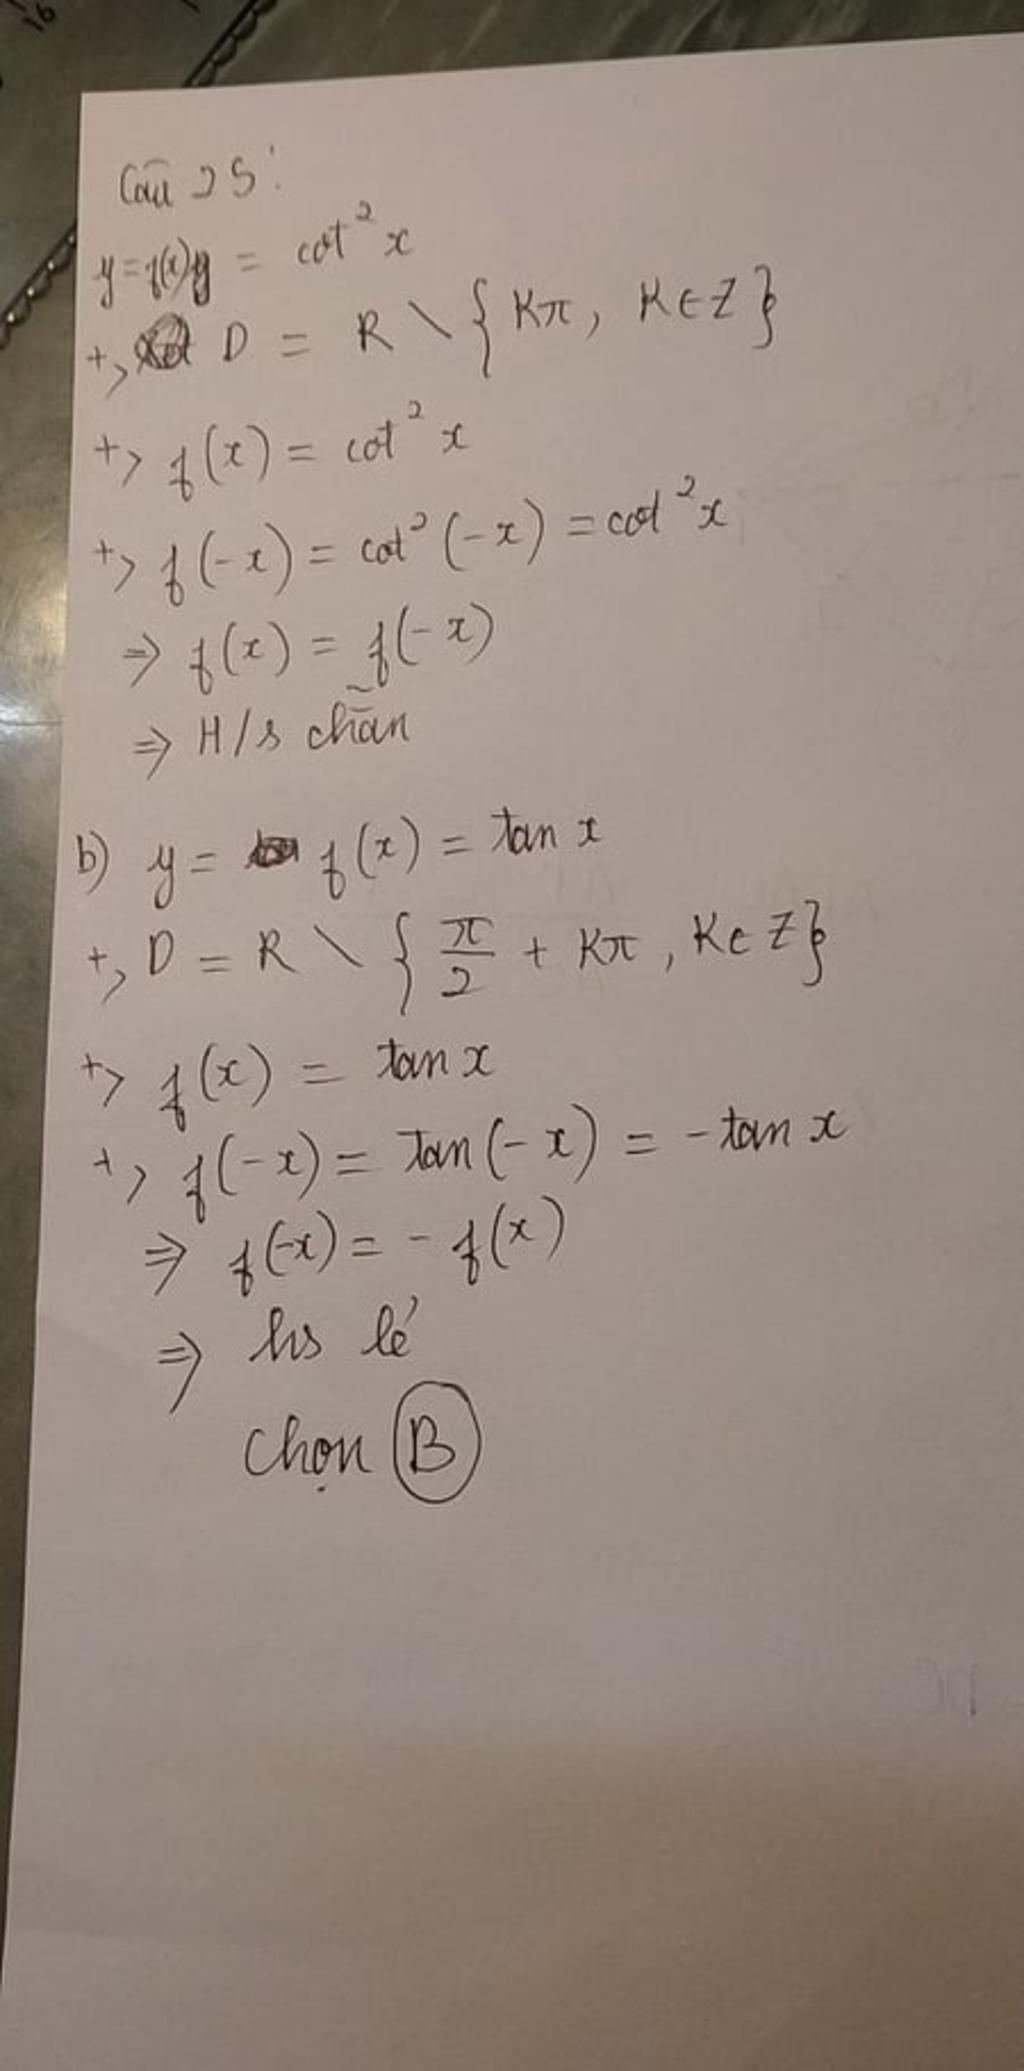 Câu 25:
y = f(x) = cot² x
+, D = R \ { Kπ, K ∈ Z }
+, f(x) = cot² x
+, f(-x) = cot² (-x) = cot² x
⇒ f(x) = f(-x)
⇒ H/s chẵn
b) y = f(x) = tan x
+, D = R \ { π/2 + Kπ, K ∈ Z }
+, f(x) = tan x
+, f(-x) = tan (-x) = - tan x
⇒ f(-x) = - f(x)
⇒ hs lẻ
Chọn B